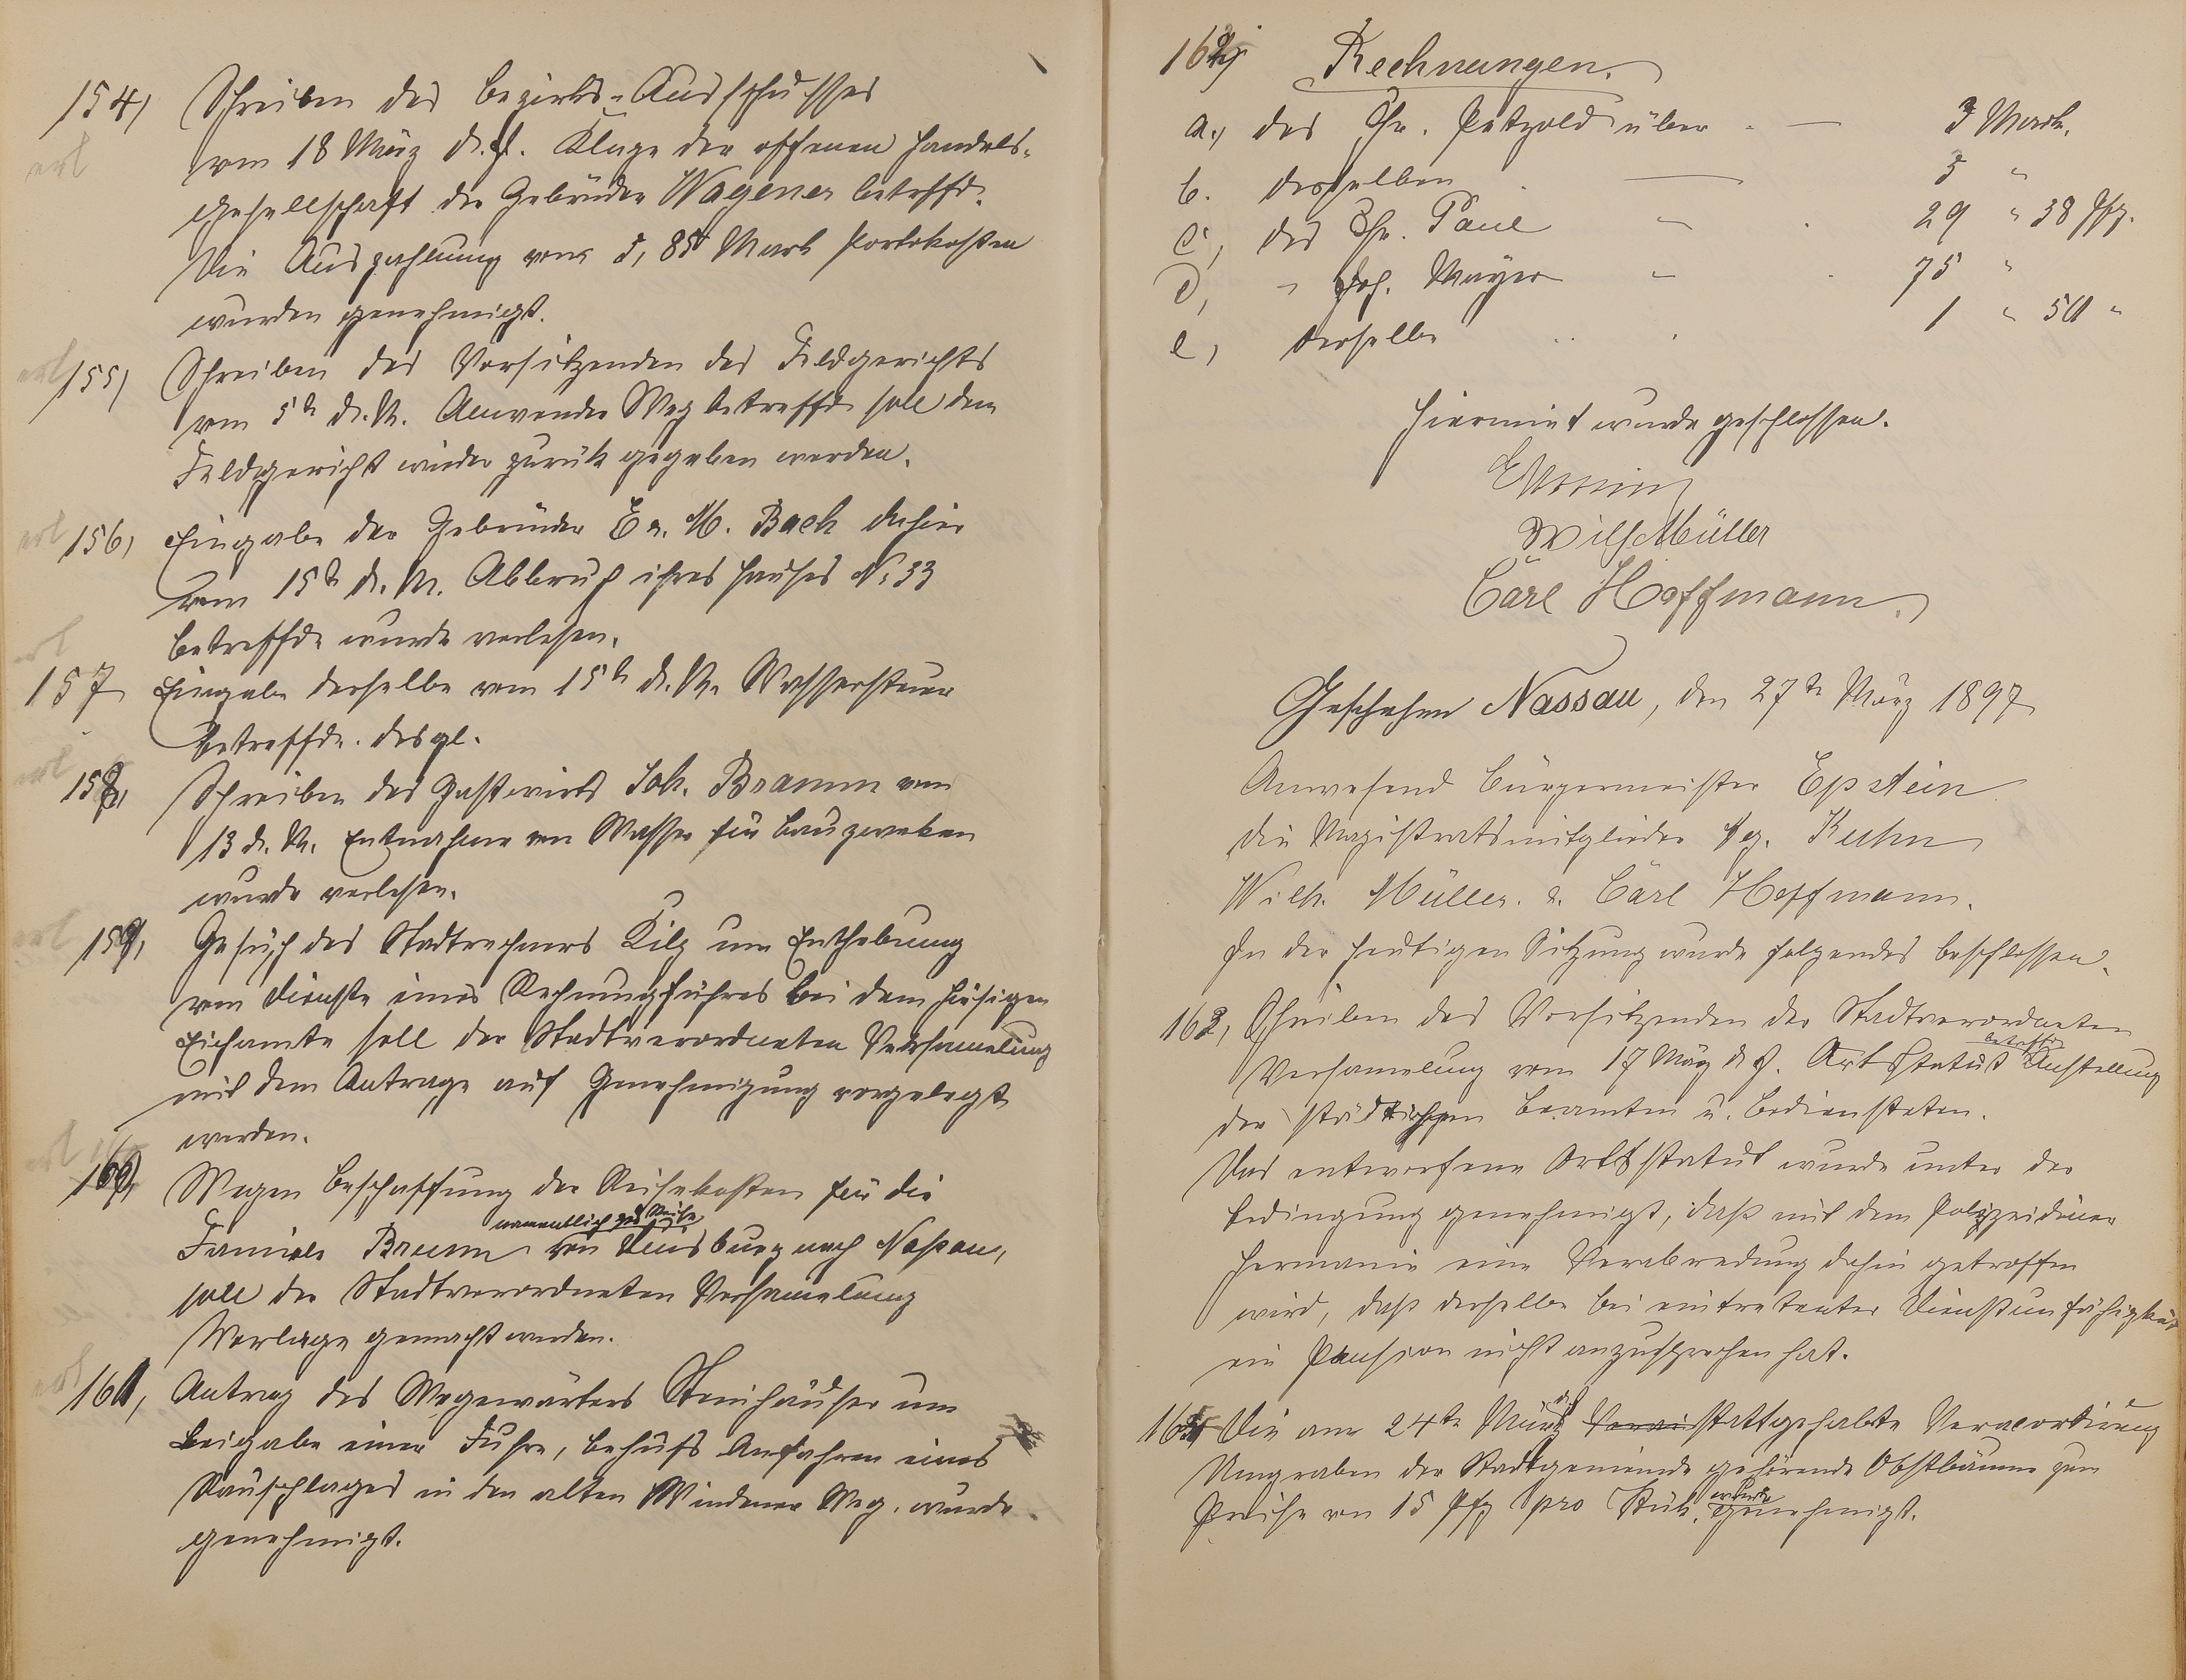 154) Schreiben des Bezirks-Ausschusses
erl
vom 18 März d. J. Klage der offenen Handels-
gesellschaft der Gebrüder Wagener betreffd.
Die Auszahlung von 5,85 Mark Portokosten
wurden genehmigt.
erl
155) Schreiben des Vorsitzenden des Feldgerichts
vom 5t d. M. Anwender Weg betreffd soll dem
Feldgericht wieder zurück gegeben werden.
erl
156) Eingabe der Gebrüder E & M. Bach dahier
vom 15t d. M. Abbruch ihres Hauses No 33
betreffde wurde verlesen.
erl
157 Eingabe derselbe vom 15t d. M. Wassersteuer
betreffde. desgl.
erl
158, Schreiben des Gastwirts Joh. Bramm vom
13 d. M. Entnahme von Wasser für Bauzweken
wurde verlesen.
erl
159, Gesuch des Stadtrechners Kilz um Enthebung
vom Dienste eines Rechnungsführes bei dem hiesigen
Eichamte soll der Stadtverordneten Versamelung
mit dem Antrage auf Genehmigung vorgelegt
werden.
erl
160, Wegen Beschaffung der Reisekosten für die
namentlich zur Reise
Familie Brumm von nach Nassau,
soll der Stadtverordneten Versamelung
Vorlage gemacht werden.
erl
161, Antrag des Wegewärters Steinhäuser um
Beigabe einer Fuhre, behufs Anfahren eines
in den alten Windener Weg. wurde
genehmigt.
162) Rechnungen.
a., des Chr. Petzold über - — 3 Mark.
b. desselben — 5 "
c, des Chr. Paul - 29 " 38 Pfg.
d, " Joh. Mayer - 75 "
e, derselbe 1 " 50 "
Hiermit wurde geschlossen.
Wilh Müller
Carl Hoffmann.
Geschehen Nassau, den 27te März 1897
Anwesend Bürgermeister Epstein
die Magistratsmitglieder Kuhn
Wilh. Müller. & Carl Hoffmann.
In der heutigen Sitzung wurde folgendes beschlossen.
163, Schreiben des Vorsitzenden der Stadtverordneten
betreffd
Versamelung vom 17 März d J. Ortsstatut Anstellung
der städtischen Beamten u. Bediensteten.
Das entworfene Ortsstatut wurde unter der
Bedingung genehmigt, daß mit dem Polizeidiener
Hermanni eine Verabredung dahin getroffen
wird, daß derselbe bei eintretenter Dienstunfähigkeit
ein Pension nicht anzusprechen hat.
164 Die am 24te März stattgehabte Veraccordirung
Umgraben der Stadtgemeinde gehörende Obstbäume zum
Preise von 15 Pfg pro Stük. wurde genehmigt.